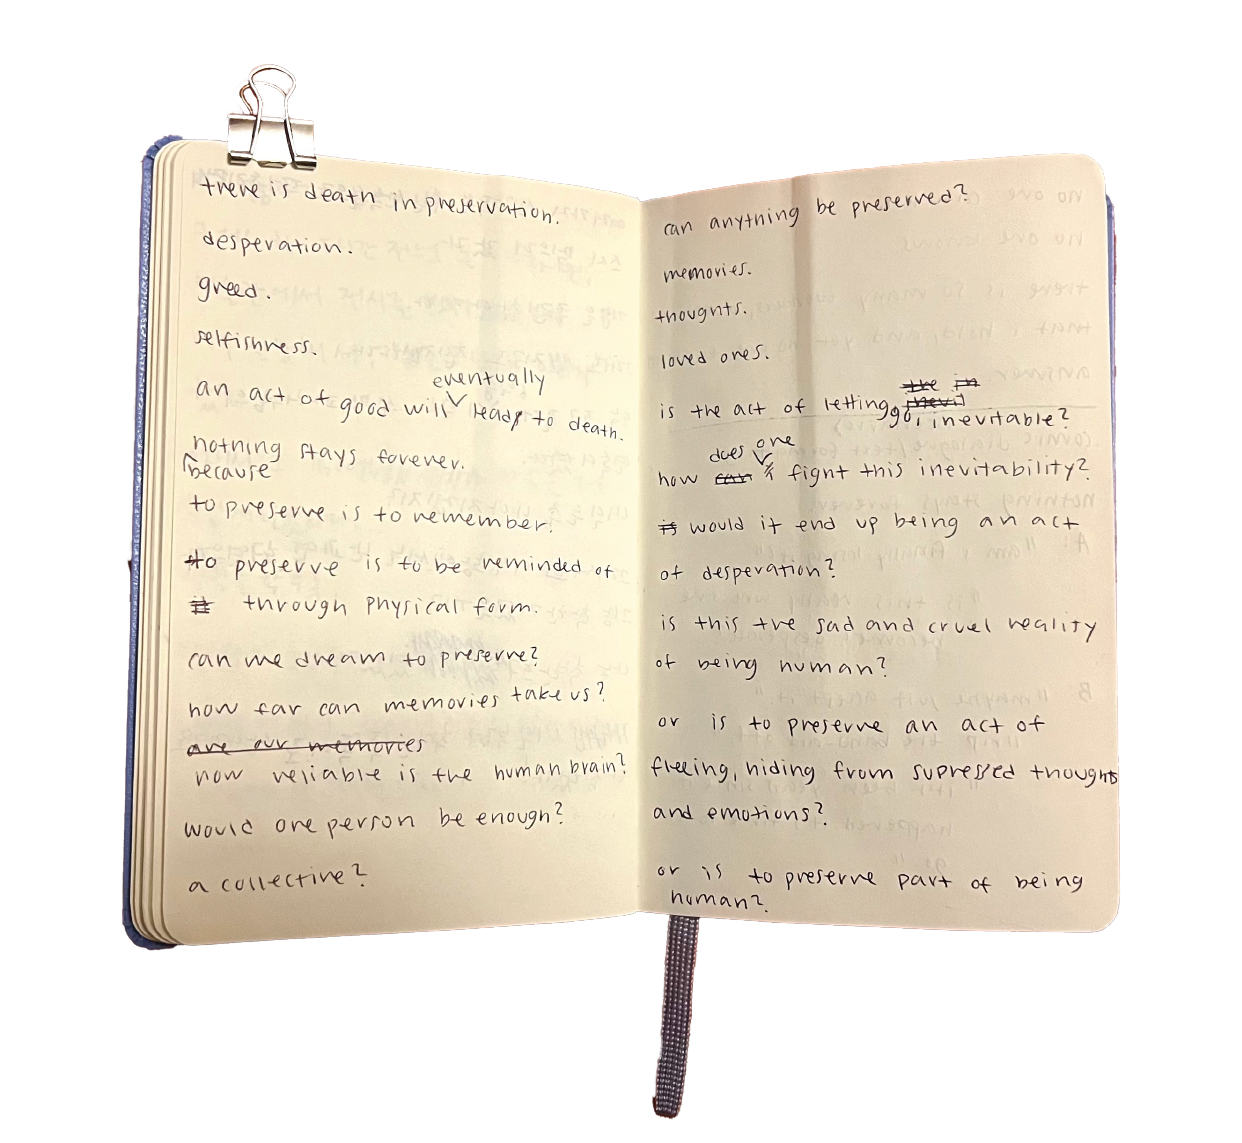 there is death in preservation.
desperation.
greed.
selfishness.
eventually
an act of good will leads to death.
nothing stays forever.
because
to preserve is to remember.
to preserve is to be reminded of
it through physical form.
can we dream to preserve?
how far can memories take us?
are our memories
how reliable is the human brain?
would one person be enough?
a collective?
can anything be preserved?
memories.
thoughts.
loved ones.
the in
is the act of letting go, inevitable?
does one
how can fight this inevitability?
would it end up being an act
of desperation?
is this the sad and cruel reality
of being human?
or is to preserve an act of
fleeing, hiding from supressed thoughts
and emotions?
or is to preserve part of being
human?